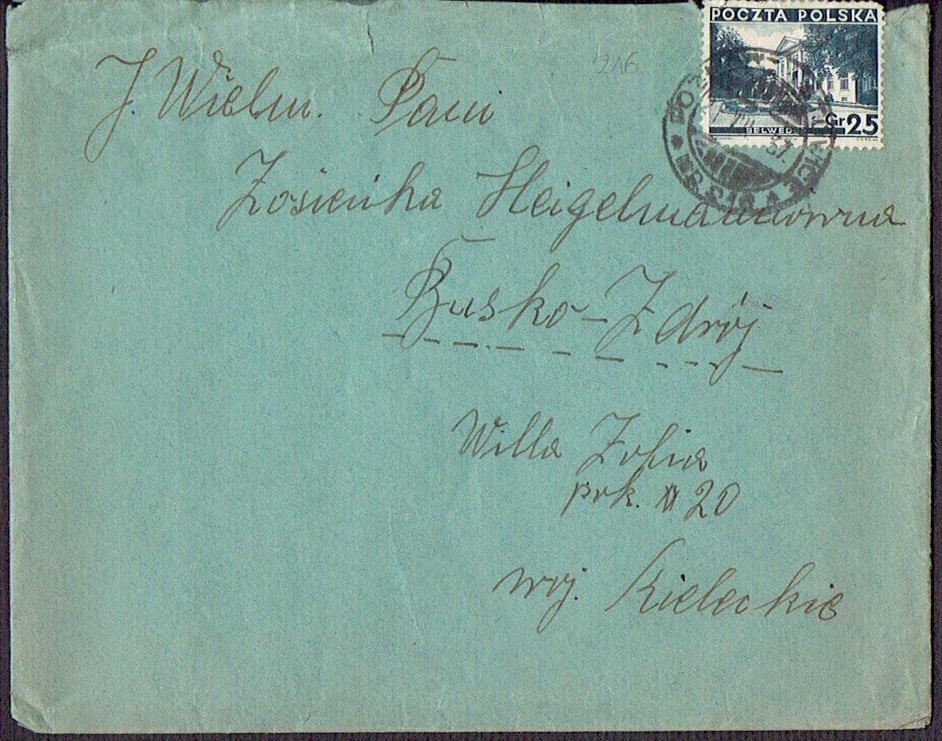 POCZTA POLSKA
BELWEDER
Gr 25
37.
216.
J. Wielm. Pani
Zosieńka Heigelmannówna
Busko-Zdrój
Willa Zofia
pok. 20
woj. Kieleckie